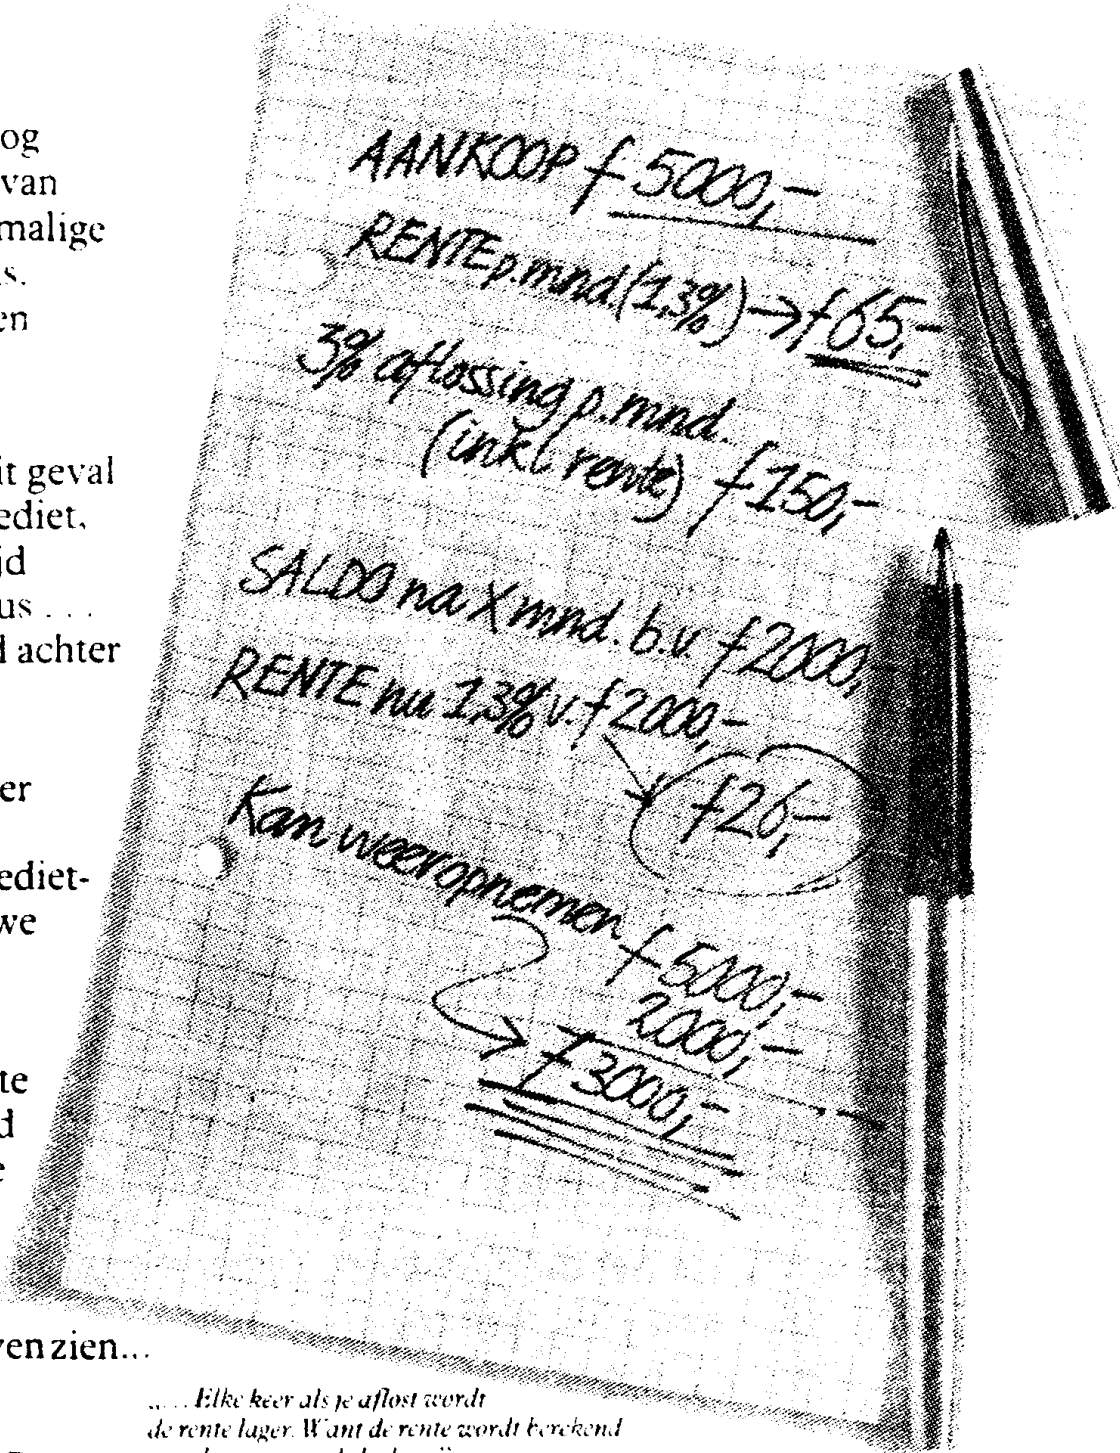 og
van
malige
s.
en
it geval
ediet,
jd
us . . .
d achter
er
ediet-
we
te
d
e
venzien...
AANKOOP f 5000,-
RENTE p.mnd.(1,3%) → f65,-
3% aflossing p.mnd.
(inkl rente) f150,-
SALDO na X mnd. b.v. f2000,-
RENTE nu 1,3% v. f2000,-
f26,-
Kan weer opnemen f5000,-
2000,-
f3000,-
„. . . Elke keer als je aflost wordt
de rente lager. Want de rente wordt berekend